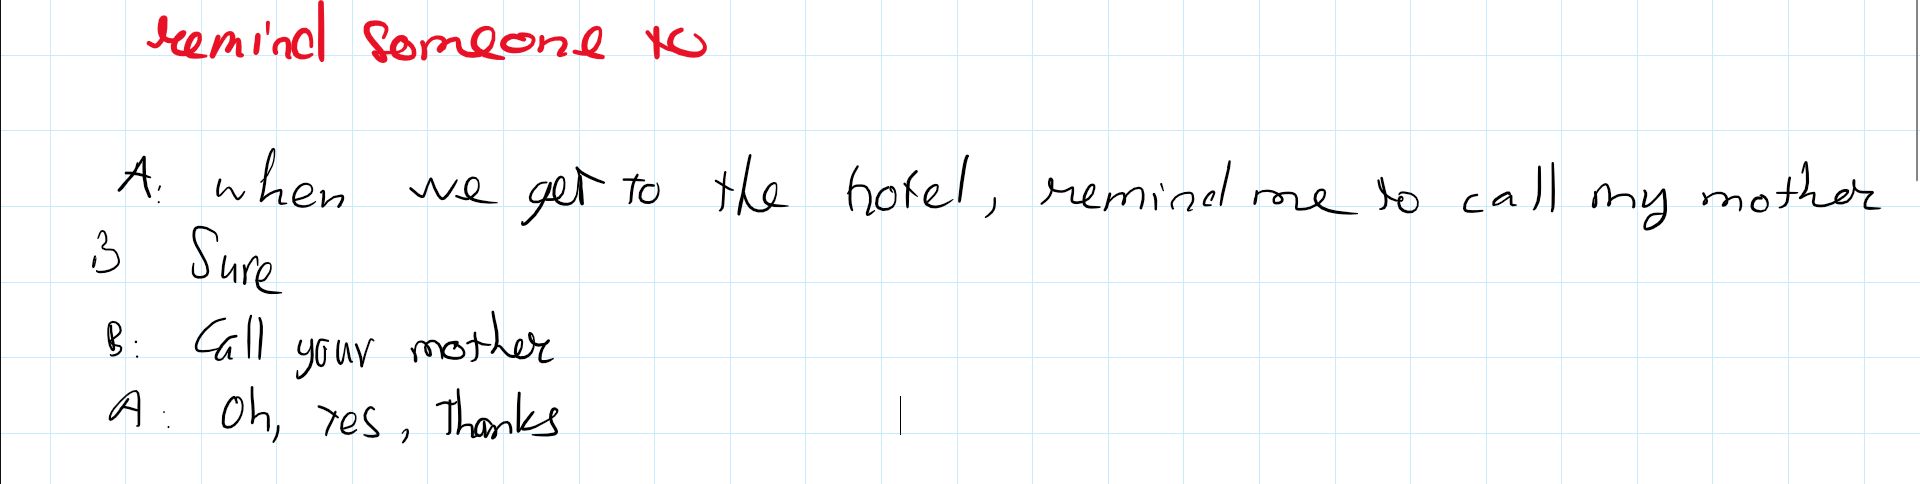 remind someone to
A: when we get to the hotel, remind me to call my mother
B Sure
B: Call your mother
A: Oh, Yes, Thanks